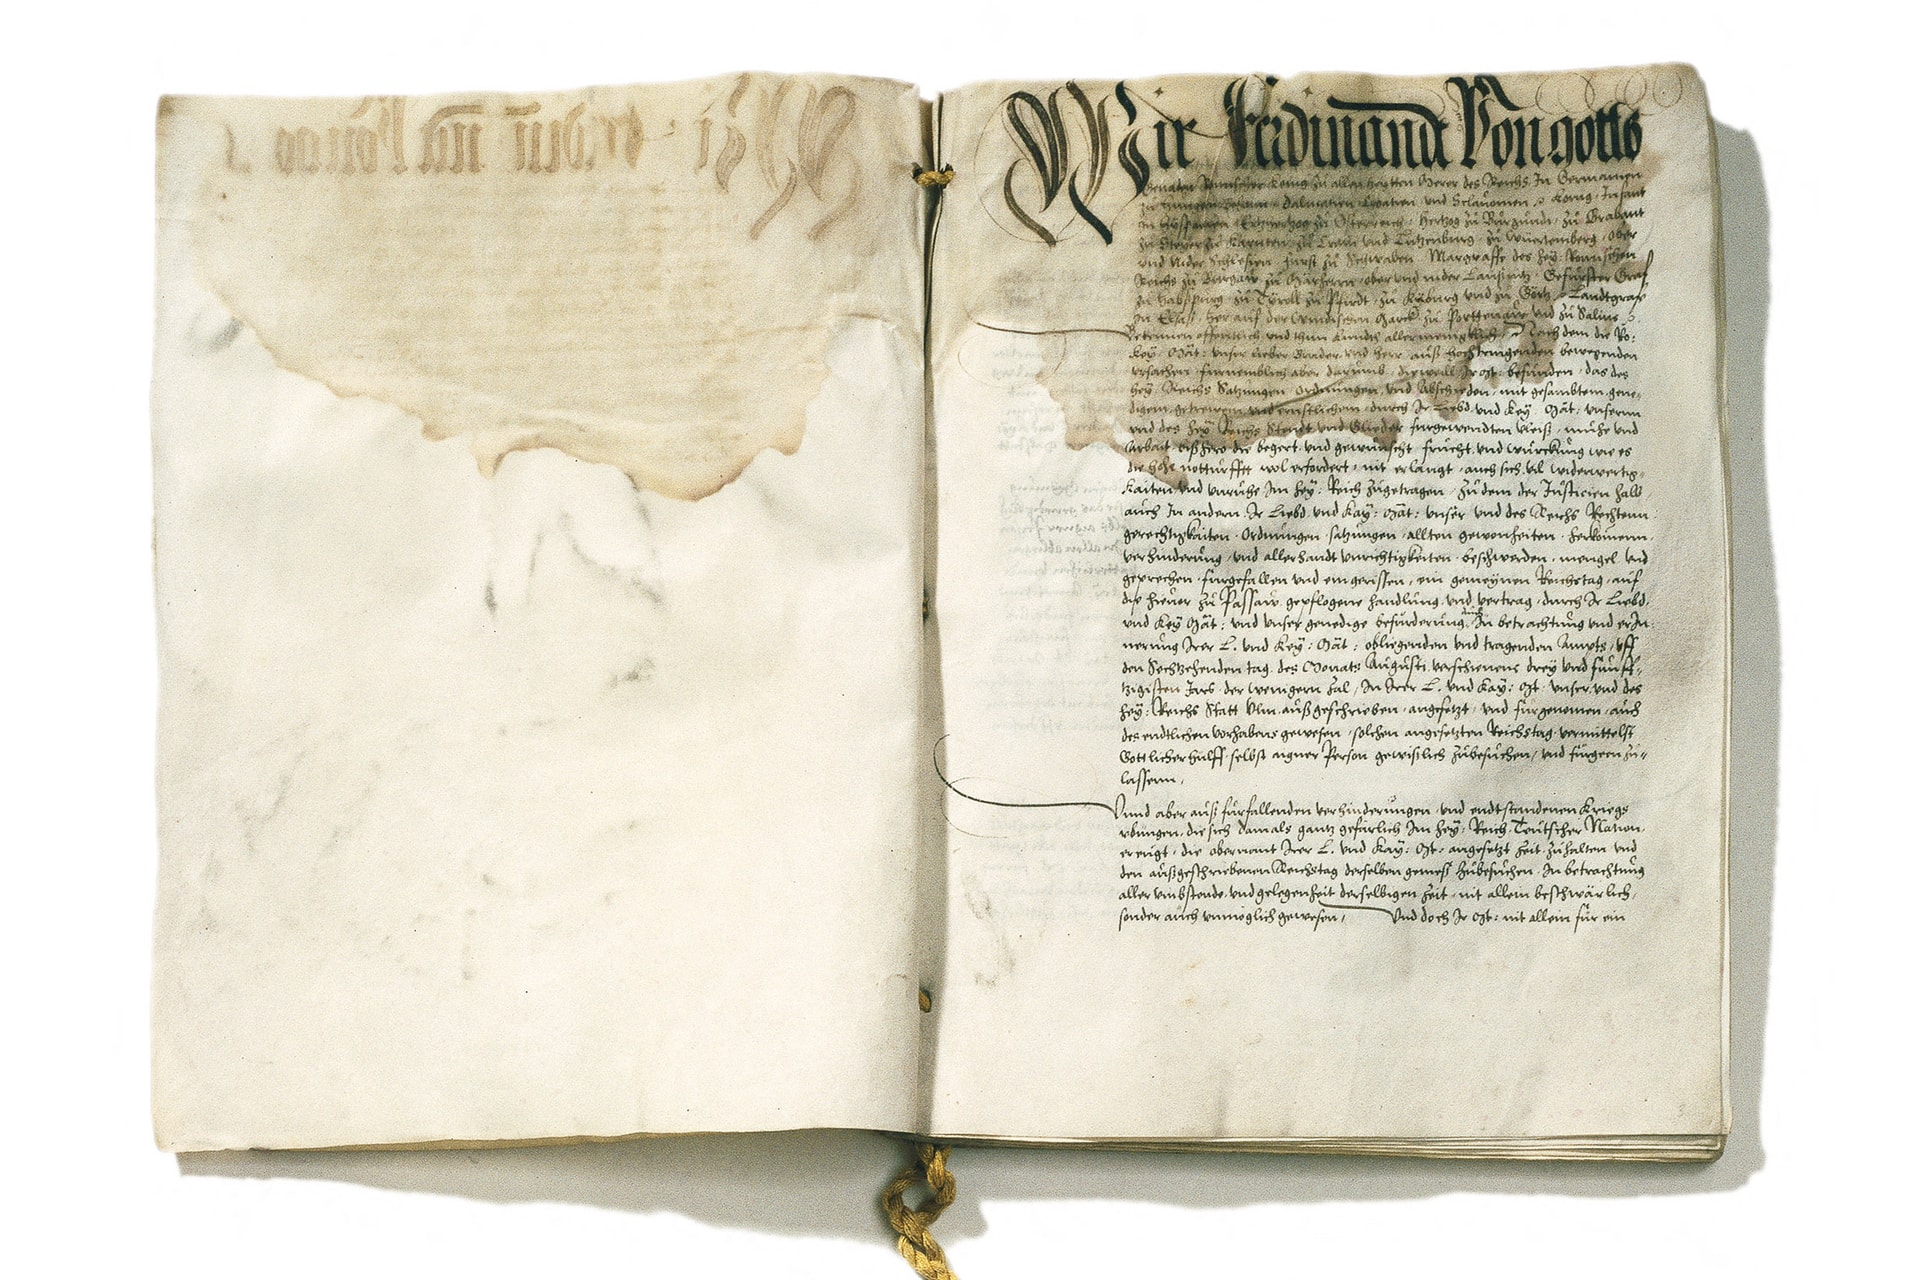 Wir Ferdinandt Von gotts
genaden Römischer König zu allen zeytten Merer des Reichs In Germanien
zu Hungern Behaim Dalmatien Croatien und Sclauonien König Infant
In Hyspanien Ertzhertzog zu Osterreich Hertzog zu Burgundi zu Brabant
zu Steyer zu Karnten zu Crain und Lutzenburg zu Wuertemberg ober
und Nider Schlesien Furst zu Schwaben Marggraffe des Hey: Römischen
Reichs zu Burgaw zu Märhern ober und nider Lausnitz Gefürster Graf
zu Habspurg zu Tyroll zu Pfirdt zu Kyburg und zu Görtz Landtgraf
In Elsass Her auf der Windischen Marck zu Porttenaw und zu Salins
Bekennen offentlich und thun kundt allermenigklich Nach dem die Ro:
Kay: Mät: unser lieber Bruder und herr auß hochtringenden bewegenden
ursachen furnemblich aber darumb dieweill Ir Mt: befunden das des
hey: Reichs Satzungen Ordnungen und Abschieden mit gesambtem gene-
digem getrewem und ernstlichem durch Ir Liebd und Key: Mät: unserm
und des Hey: Reichs Stendt und Glieder furgewendten vleiß mühe und
Arbait bißhero die begert und gewunscht frucht und würckung wie es
die hohe notturfft wol erfordert nit erlangt auch sich vil widerwertig-
kaiten und unruhe Im hey: Reich zugetragen zu dem der Justicien halb
auch In andern Ir Liebd und Kay: Mät: unser und des Reichs Rechtenn
gerechtigkeiten Ordnungen satzungen allten gewonheiten herkomenn
verhinderung und allerhandt unrichtigkeiten beschwerden mengel und
geprechen furgefallen und eingerissen ein gemeynen Reichstag auf
die hieuor zu Passaw gepflogene handlung und vertrag durch Ir Liebd
und Key: Mät: und unser genedige befurderung auch In betrachtung und erIn-
nerung Irer L. und Key: Mät: obliegenden und tragenden Ampts uff
den Sechtzehenden tag des Monats Augusti verschienens drey und funff-
tzigisten Jars der wenigern zal In Irer L. und Kay: Mt: unser und des
hey: Reichs Statt Ulm außgeschrieben angesetzt und furgenomen auch
des endtlichen vorhabens gewesen solchen angesetzten Reichstag vermittelst
Gottlicher hulff selbst aigner Person gewißlich zubesuchen und furgeen zu-
lassenn
Unnd aber auß furfallenden verhinderungen und endtstandenen Kriegs
ubungen die sich damals gantz gefärlich Im hey: Reich Teutscher Nation
ereugt die obernant Irer L. und Kay: Mt: angesetzt zeit zuhalten und
den außgeschriebenen Reichstag derselben gemeß zubesuchen In betrachtung
aller umbstende und gelegenheit derselbigen zeit nit allein beschwärlich
sonder auch unmöglich gewesen Und doch Ir Mt: nit allein für ein